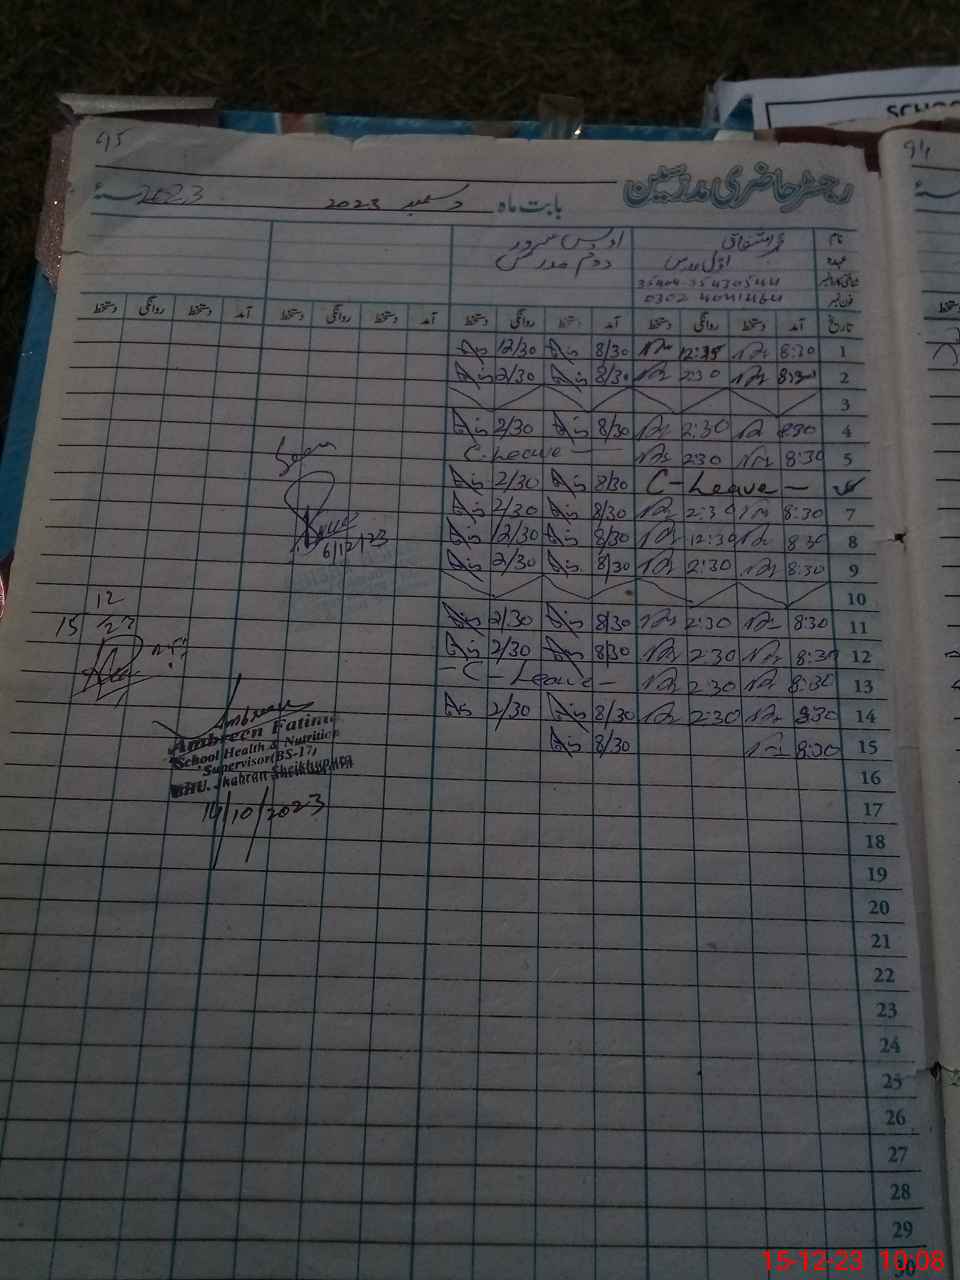 95
94
SCHOO
رجسٹر حاضری مدرسین
بابت ماہ دسمبر 2023 2023 سنۂ
نام محمد اشتفاق اویس سرور
عہدہ اول مدرس دوم مدرس
35404-35430544
0302 4041464
تاریخ آمد دستخط روانگی دستخط آمد دستخط روانگی دستخط آمد دستخط روانگی دستخط آمد دستخط روانگی دستخط
1 8:30 12:35 8/30 12/30
2 8:30 2:30 8/30 2/30
3
4 8:30 2:30 8/30 2/30
5 8:30 2:30 C.Leave
C-Leave 8/30 2/30
7 8:30 2:30 8/30 2/30
8 8:30 12:30 8/30 12/30
9 8:30 2:30 8/30 2/30
10
11 8:30 2:30 8/30 2/30
12 8:30 2:30 8/30 2/30
13 8:30 2:30 -C-Leave-
14 8:30 2:30 8/30 2/30
15 8:30 8/30
16
17
18
19
20
21
22
23
24
25
26
27
28
29
30
Seen
6/12/23
15 12
Ambreen
Ambreen Fatima
School Health & Nutrition
Supervisor(BS-17)
BHU. Jhabran Sheikhupura
14/10/2023
15-12-23 10:08